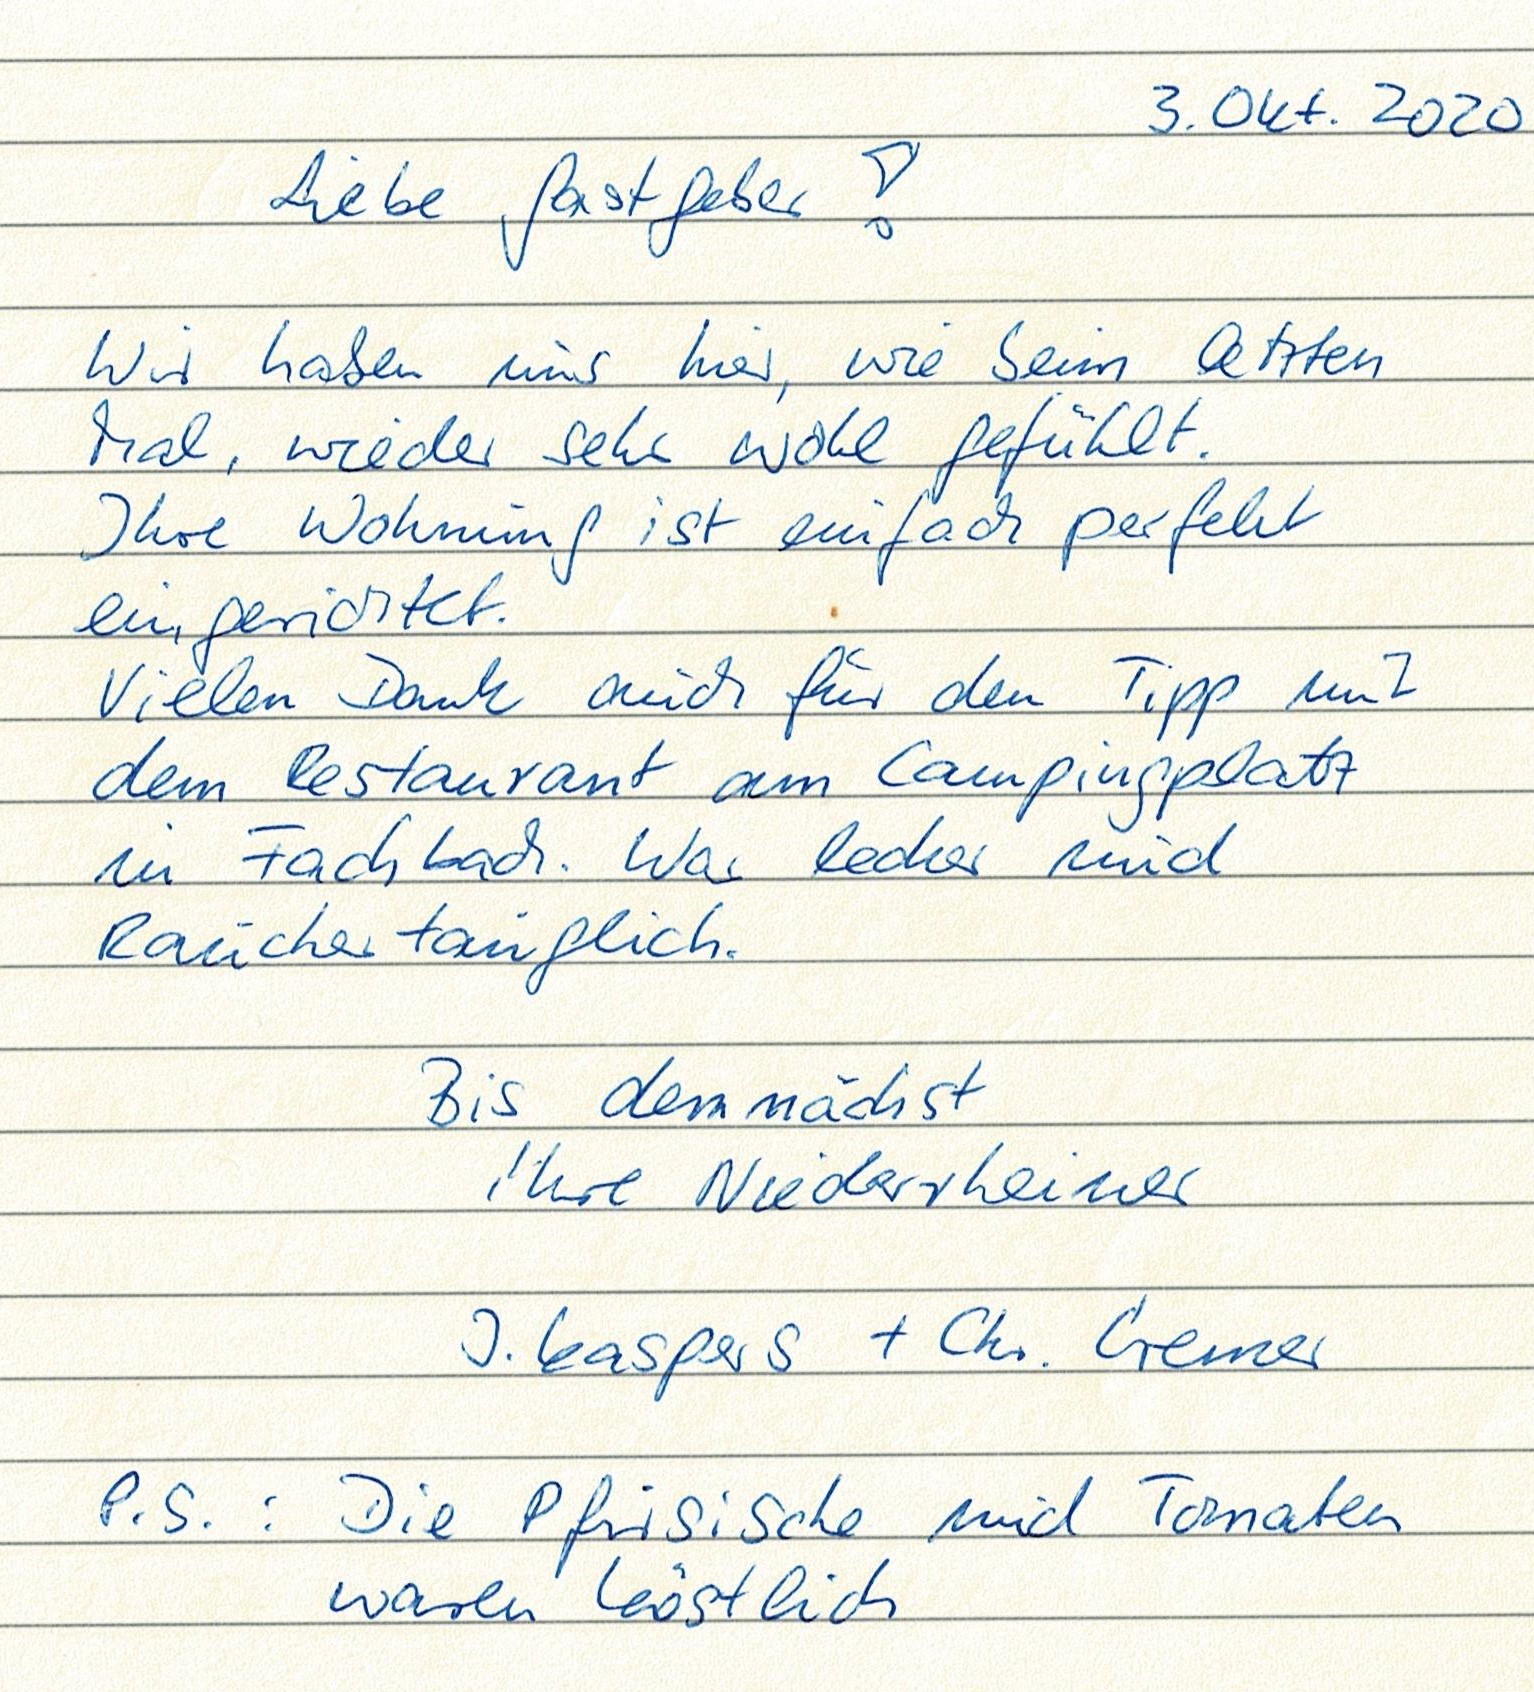 3. Okt. 2020
Liebe Gastgeber!
Wir haben uns hier, wie beim letzten
Mal, wieder sehr wohl gefühlt.
Ihre Wohnung ist einfach perfekt
eingerichtet.
Vielen Dank auch für den Tipp mit
dem Restaurant am Campingplatz
in Fachbach. War lecker und
Rauchertauglich.
Bis demnächst
Ihre Niederrheiner
J. Kaspers + Chr. Cremer
P.S. : Die Pfirsische und Tomaten
waren köstlich